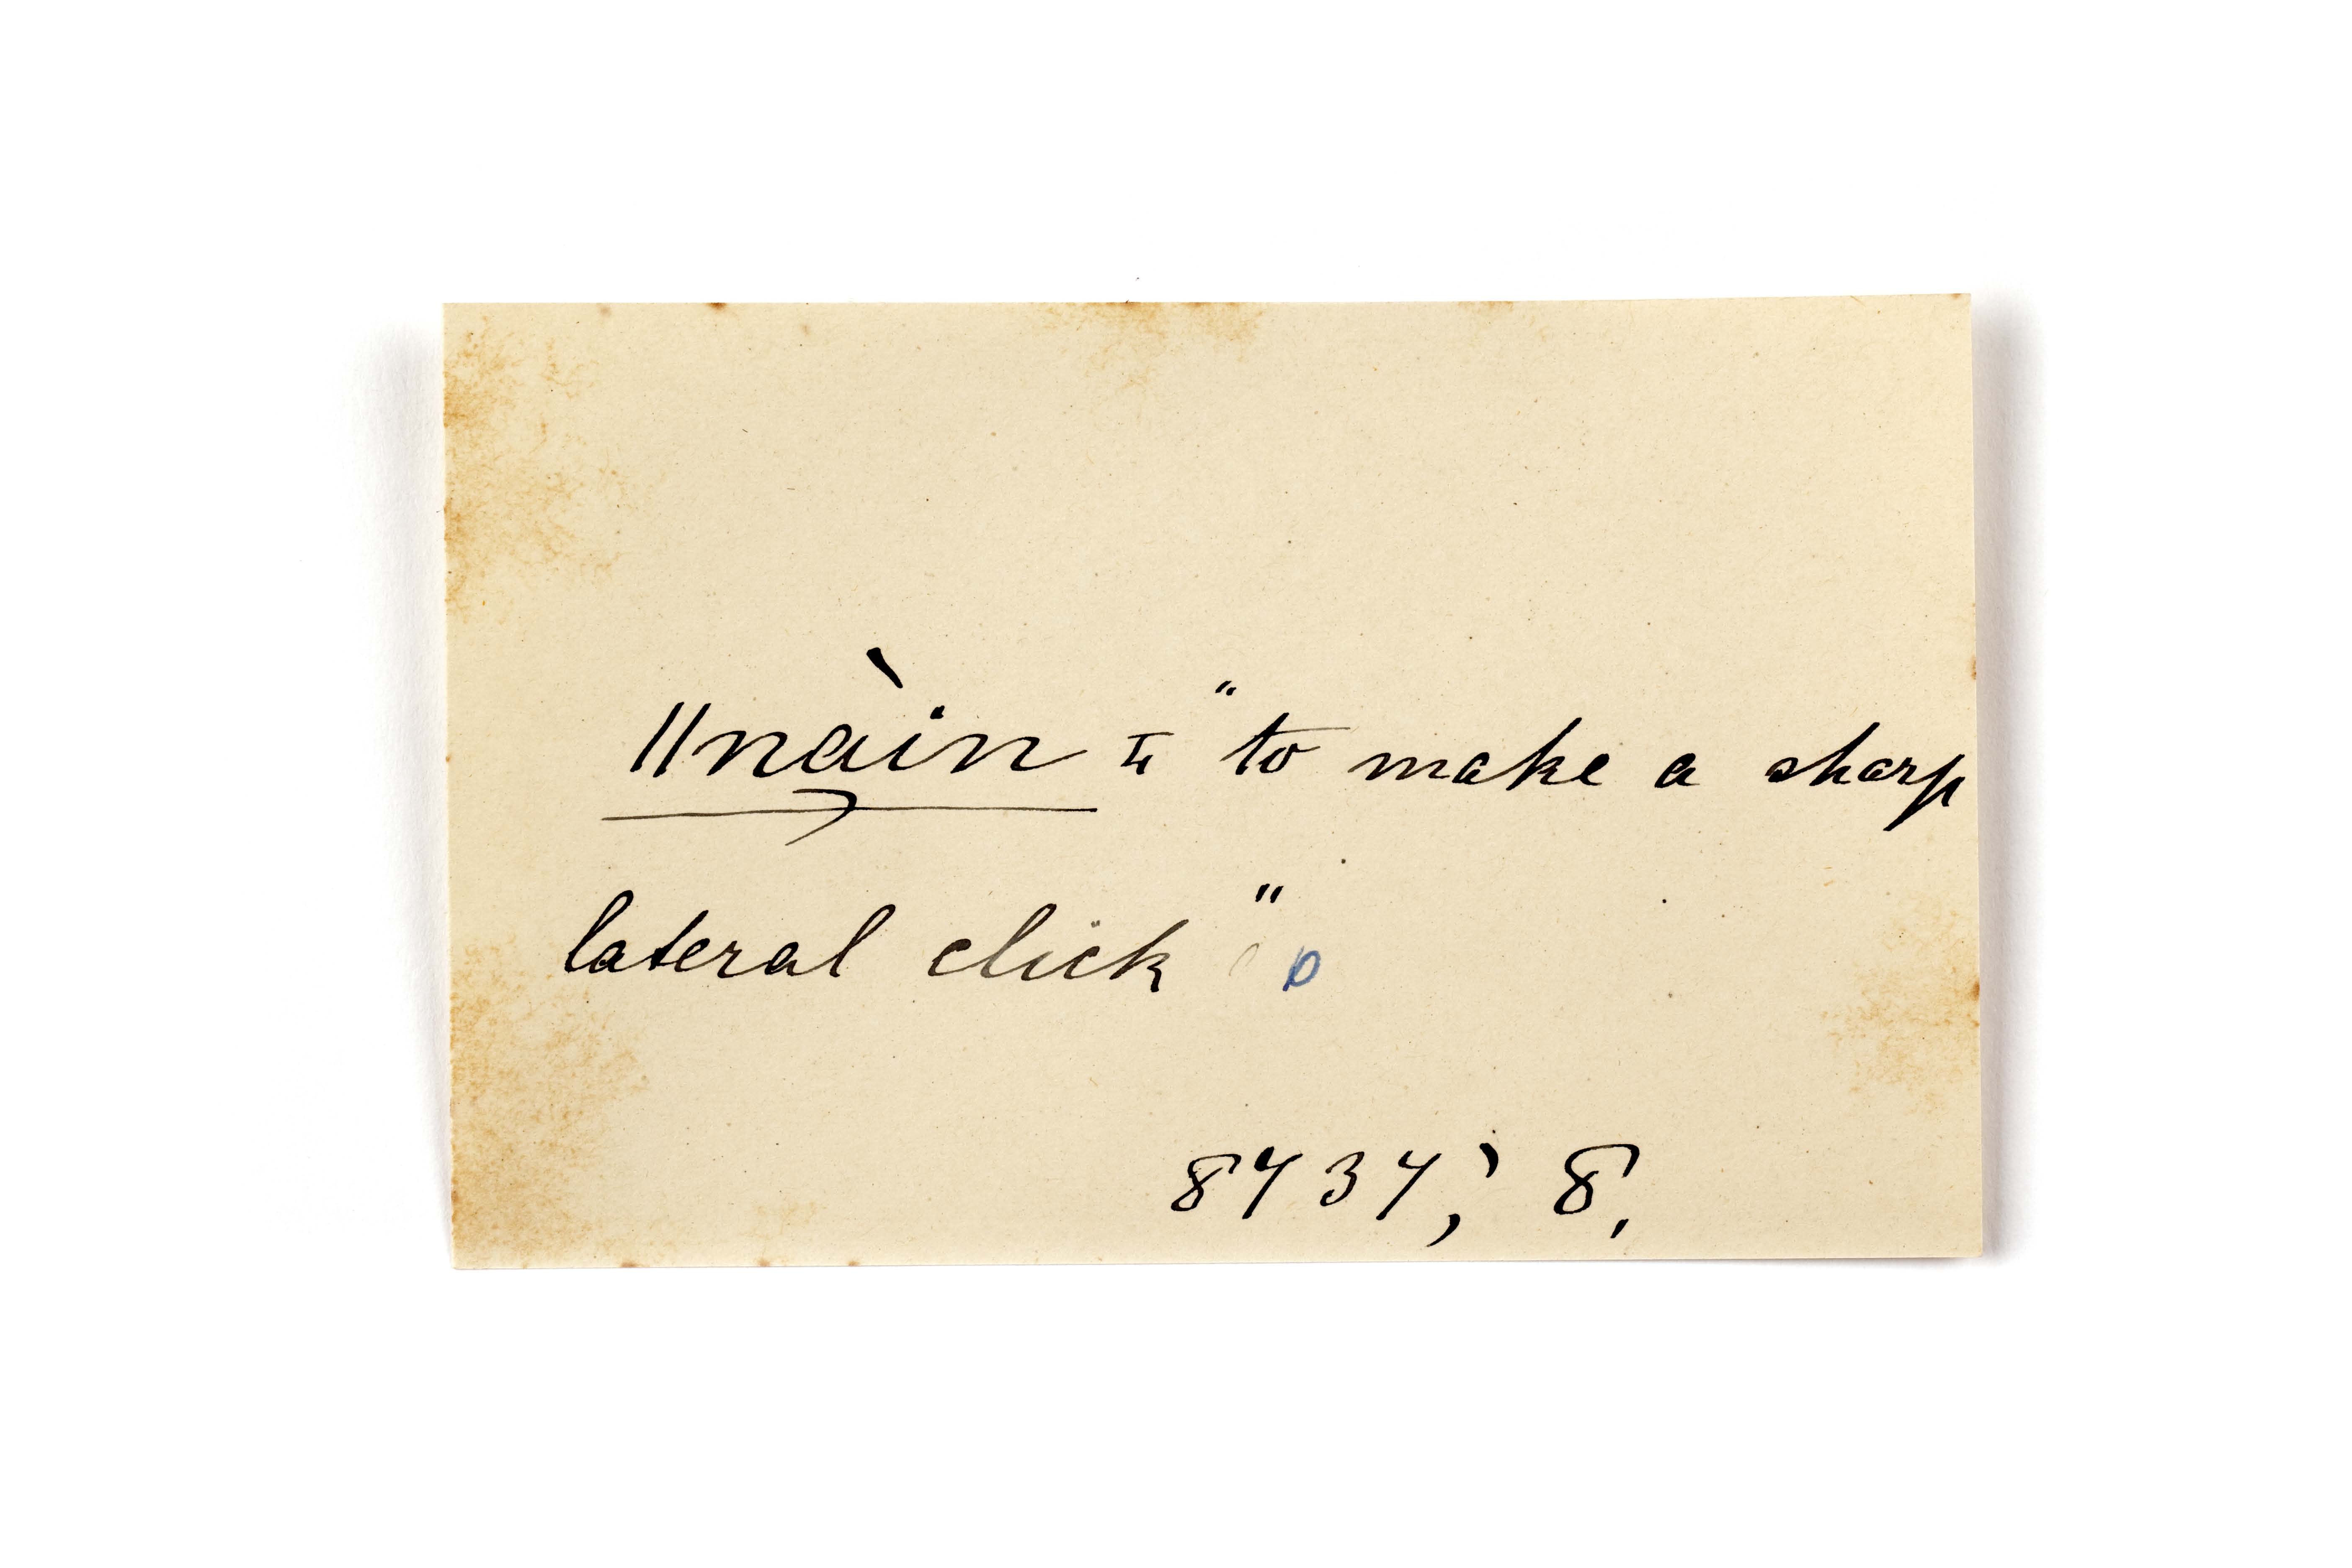 ǁnàin = "to make a sharp
lateral click"
8737; 8.